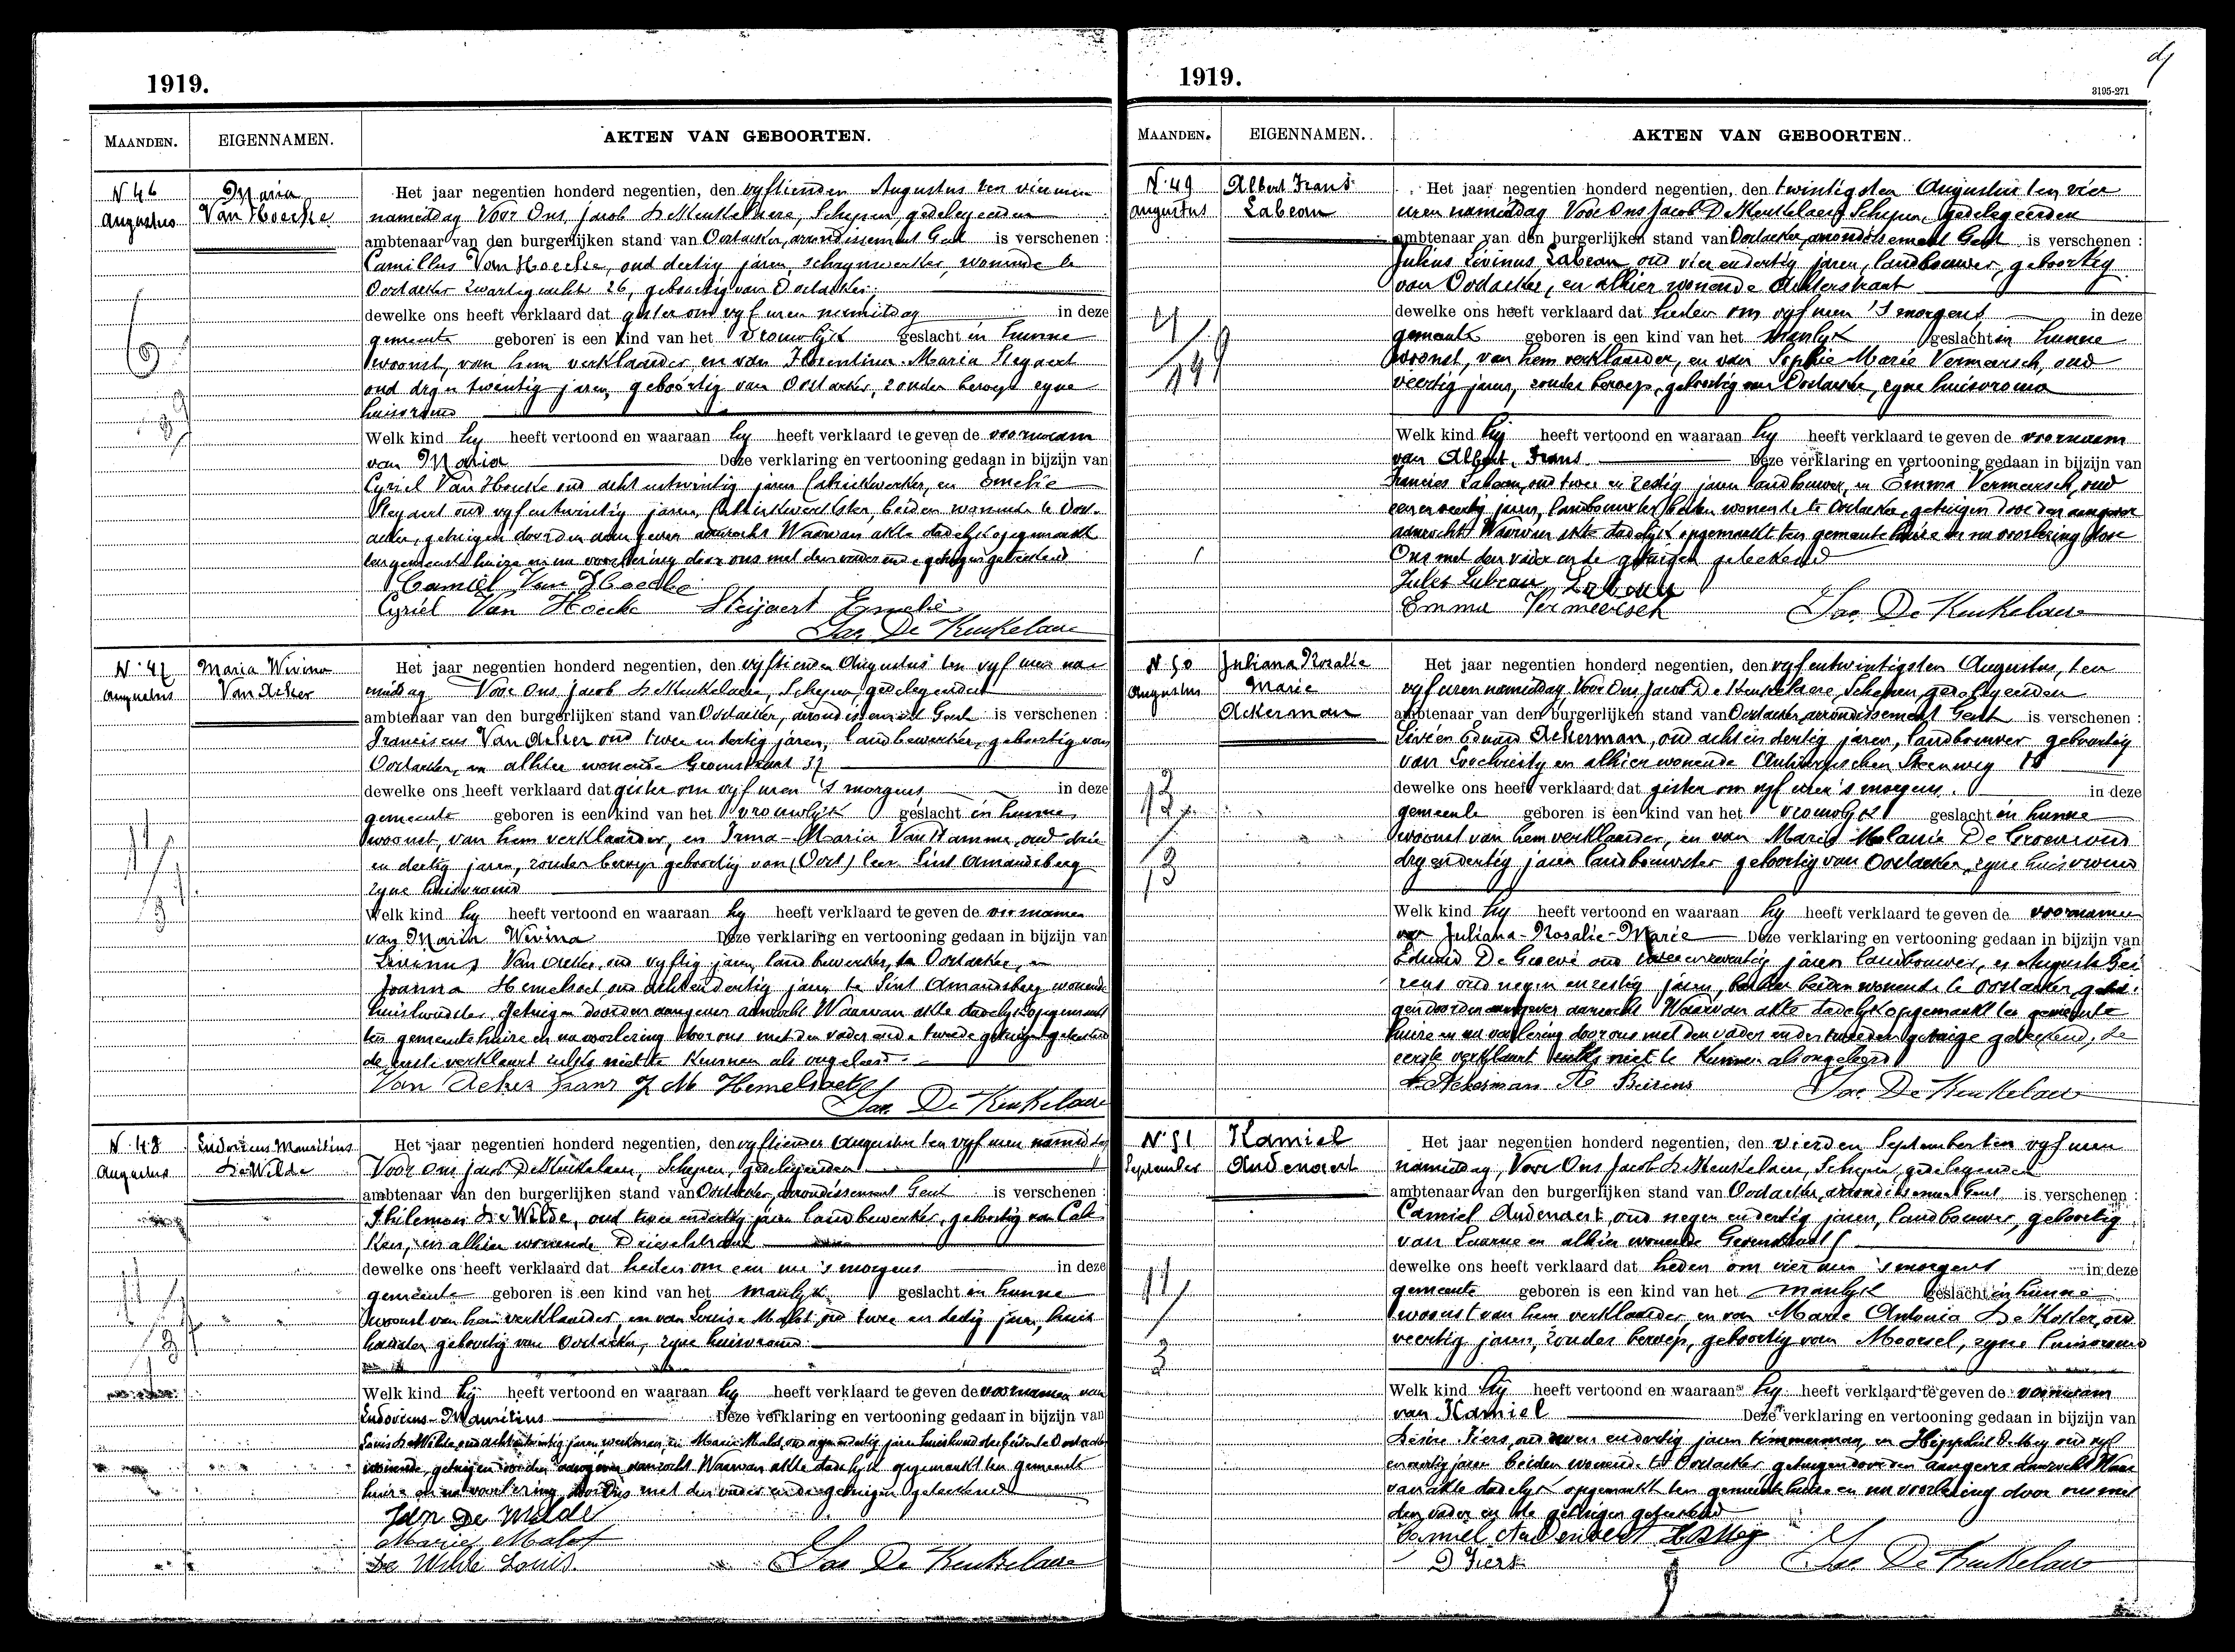 1919.
MAANDEN. EIGENNAMEN. AKTEN VAN GEBOORTEN.
N 46 Augustus
Maria Van Hoecke
Het jaar negentien honderd negentien, den vyftienden Augustus ten vier uren
namiddag Voor Ons, Jacob De Keukelaere, Schepen, gedelegeerden
ambtenaar van den burgerlijken stand van Oostacker, arrondissement Gent is verschenen :
Camillus Van Hoecke, oud dertig jaren, schrynwerker, wonende te
Oostacker 26, geboortig van Oostacker
dewelke ons heeft verklaard dat gister om vyf uren namiddag in deze
gemeente geboren is een kind van het vrouwlyk geslacht in hunne
woonst, van hem verklaarder, en van Florentina Maria Steyaert
oud dry en twentig jaren, geboortig van Oostacker, zonder beroep zyne
huisvrouw
Welk kind hy heeft vertoond en waaraan hy heeft verklaard te geven de voornaam
van Maria Deze verklaring en vertooning gedaan in bijzijn van
Cyriel Van Hoecke oud acht entwintig jaren fabriekwerker, en Emelie
Steyaert oud vyfentwintig jaren, fabriekwerkster, beiden wonende te Oost-
acker, getuigen door den aangever aanzocht Waarvan akte dadelyk opgemaakt
ten gemeente huize en na voorlezing door ons met den vader en de getuigen geteekend
Camiel Van Hoecke
Cyriel Van Hoecke Steijaert Emelie
Jac. De Keukelaere
N. 47 Augustus
Maria Wivina Van Acker
Het jaar negentien honderd negentien, den vyftienden Augustus ten vyf uren na-
middag Voor Ons, Jacob De Keukelaere, Schepen gedelegeerden
ambtenaar van den burgerlijken stand van Oostacker, arrondissement Gent is verschenen :
Franciscus Van Acker oud twee en dertig jaren, landbewerker, geboortig van
Oostacker, en alhier wonende Groenstraat 37
dewelke ons heeft verklaard dat gister om vyf uren 's morgens in deze
gemeente geboren is een kind van het vrouwlyk geslacht in hunne
woonst, van hem verklaarder, en Irma-Maria Van Hamme, oud drie
en dertig jaren, zonder beroep geboortig van (Oost) Sint Amandsberg
zyne huisvrouw
Welk kind hy heeft vertoond en waaraan hy heeft verklaard te geven de voornamen
van Maria Wivina Deze verklaring en vertooning gedaan in bijzijn van
Livinus Van Acker, oud vyftig jaren, landbewerker, te Oostacker, en
Joanna Hemelsoet, oud achtendertig jaren te Sint Amandsberg wonende
huishoudster, getuigen door den aangever aanzocht Waarvan akte dadelyk opgemaakt
ten gemeentehuize en na voorlezing door ons met den vader en de tweede getuige geteekend
de eerste verklaart zulks niet te kunnen als ongeleerd.
Van Acker Frans J M Hemelsoet
Jac. De Keukelaere
N. 48 Augustus
Ludovicus Mauritius De Wilde
Het jaar negentien honderd negentien, den vyftienden Augustus ten vyf uren namiddag
Voor Ons Jacob De Keukelaere, Schepen, gedelegeerden
ambtenaar van den burgerlijken stand van Oostacker, arrondissement Gent is verschenen :
Philemon De Wilde, oud twee en dertig jaren landbewerker, geboortig van Cal-
ken, en alhier wonende Drieselstraat
dewelke ons heeft verklaard dat heden om een ure 's morgens in deze
gemeente geboren is een kind van het manlyk geslacht in hunne
woonst van hem verklaarder, en van Louise Malst oud twee en dertig jaren, huis
houdster, geboortig van Oostacker, zyne huisvrouw
Welk kind hij heeft vertoond en waaraan hy heeft verklaard te geven de voornamen van
Ludovicus-Mauritius Deze verklaring en vertooning gedaan in bijzijn van
Louis De Wilde, oud achtentwintig jaren werkman, en Marie Malst, oud dertig jaren huishoudster beiden te Oostacker
wonende, getuigen door den aangever aanzocht Waarvan akte dadelyk opgemaakt ten gemeente
huize en na voorlezing door Ons met den vader en de getuigen geteekend
De Wilde
Marie Malst
De Wilde Louis. Jac. De Keukelaere
1919.
3195-271
MAANDEN. EIGENNAMEN. AKTEN VAN GEBOORTEN.
N. 49 Augustus
Albert Frans Labeau
Het jaar negentien honderd negentien, den twintigsten Augustus ten vier
uren namiddag Voor Ons Jacob De Keukelaere, Schepen, gedelegeerden
ambtenaar van den burgerlijken stand van Oostacker, arrondissement Gent is verschenen :
Julius Livinus Labeau oud vier endertig jaren, landbouwer, geboortig
van Oostacker, en alhier wonende Achterstraat
dewelke ons heeft verklaard dat heden om vyf uren 's morgens in deze
gemeente geboren is een kind van het manlyk geslacht in hunne
woonst, van hem verklaarder, en van Sophie Marie Vermeersch, oud
veertig jaren, zonder beroep, geboortig van Oostacker, zyne huisvrouw
Welk kind hij heeft vertoond en waaraan hy heeft verklaard te geven de voornaam
van Albert Frans. Deze verklaring en vertooning gedaan in bijzijn van
Francies Labeau, oud twee en zestig jaren landbouwer, en Emma Vermeersch, oud
een en veertig jaren, landbouwster beiden wonende te Oostacker, getuigen door den aangever
aanzocht Waarvan akte dadelyk opgemaakt ten gemeente huize en na voorlezing door
Ons met den vader en de getuigen geteekend
Jules Labeau Labeau
Emma Vermeersch Jac. De Keukelaere
N. 50 Augustus
Juliana Rosalie Marie Ackerman
Het jaar negentien honderd negentien, den vyfentwintigsten Augustus, ten
vyf uren namiddag Voor Ons, Jacob De Keukelaere, Schepen, gedelegeerden
ambtenaar van den burgerlijken stand van Oostacker, arrondissement Gent is verschenen :
Livien Eduard Ackerman, oud achtendertig jaren, landbouwer geboortig
van Loochristy en alhier wonende Antwerpschen Steenweg
dewelke ons heeft verklaard dat gister om vyf uren 's morgens. in deze
gemeente geboren is een kind van het vrouwlyk geslacht in hunne
woonst van hem verklaarder, en van Marie Melanie De Groeve oud
dryendertig jaren landbouwster geboortig van Oostacker, zyne huisvrouw
Welk kind hy heeft vertoond en waaraan hy heeft verklaard te geven de voornamen
van Juliana-Rosalie-Marie Deze verklaring en vertooning gedaan in bijzijn van
Eduard De Groeve oud jaren landbouwer, en Auguste Bei
rens oud negen enzestig jaren, beiden wonende te Oostacker, getui-
gen door den aangever aanzocht Waarvan akte dadelyk opgemaakt ten gemeente
huize en na voorlezing door ons met den vader en den tweeden getuige geteekend, de
eerste verklaart zulks niet te kunnen als ongeleerd
Ackerman Beirens Jac. De Keukelaere
N. 51 September
Kamiel Audenaert
Het jaar negentien honderd negentien, den vierden September ten vyf uren
namiddag, Voor Ons Jacob De Keukelaere, Schepen, gedelegeerden
ambtenaar van den burgerlijken stand van Oostacker, arrondissement Gent is verschenen :
Camiel Audenaert oud negen endertig jaren, landbouwer, geboortig
van Laarne en alhier wonende Groenstraat
dewelke ons heeft verklaard dat heden om vier uren 's morgens in deze
gemeente geboren is een kind van het manlyk geslacht in hunne
woonst van hem verklaarder, en van Marie Antonia De Koster, oud
veertig jaren, zonder beroep, geboortig van Moorsel, zyne huisvrouw
Welk kind hij heeft vertoond en waaraan hy heeft verklaard te geven de voornaam
van Kamiel Deze verklaring en vertooning gedaan in bijzijn van
Désiré Fiers, oud endertig jaren timmerman, en oud vyf
jaren beiden wonende te Oostacker, getuigen door den aangever aanzocht Waar
van akte dadelyk opgemaakt ten gemeentehuize en na voorlezing door ons met
den vader en de getuigen geteekend
Camiel Audenaert
D Fiers Jac. De Keukelaere